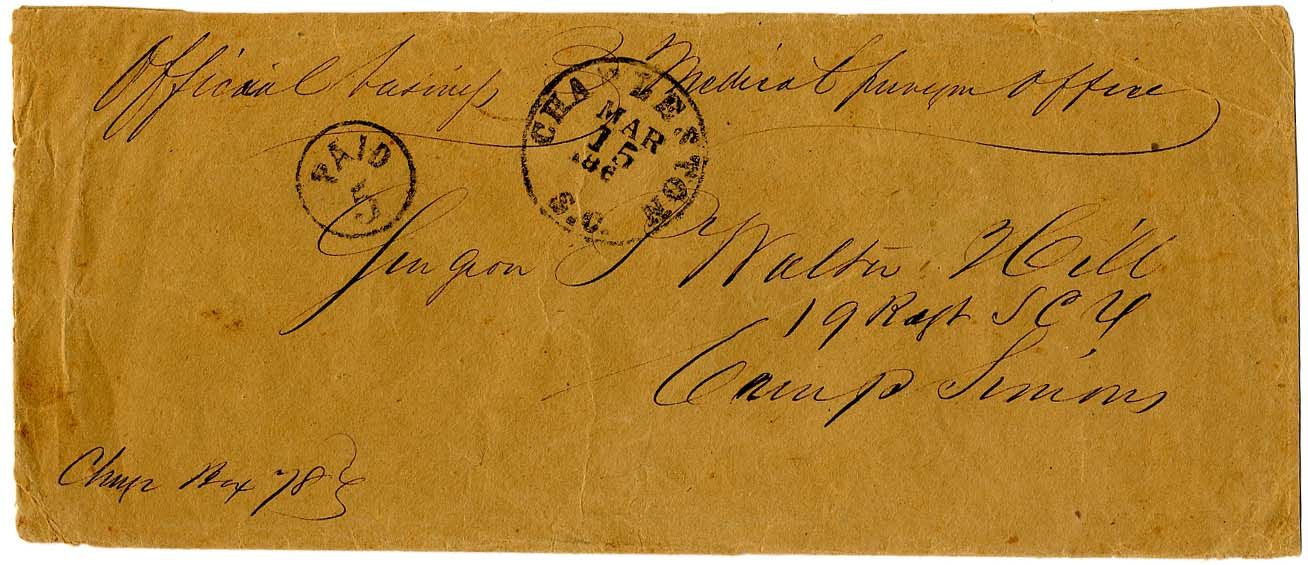 Official business Medical purvym office
PAID
5
CHARLESTON
MAR
15
186
S.C.
Surgeon Walter Hill
19 Regt S C V
Camp Simons
Charge Box 78